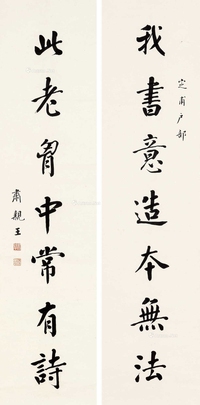 我書意造本無法
定甫户部
此老胷中常有詩
肅親王